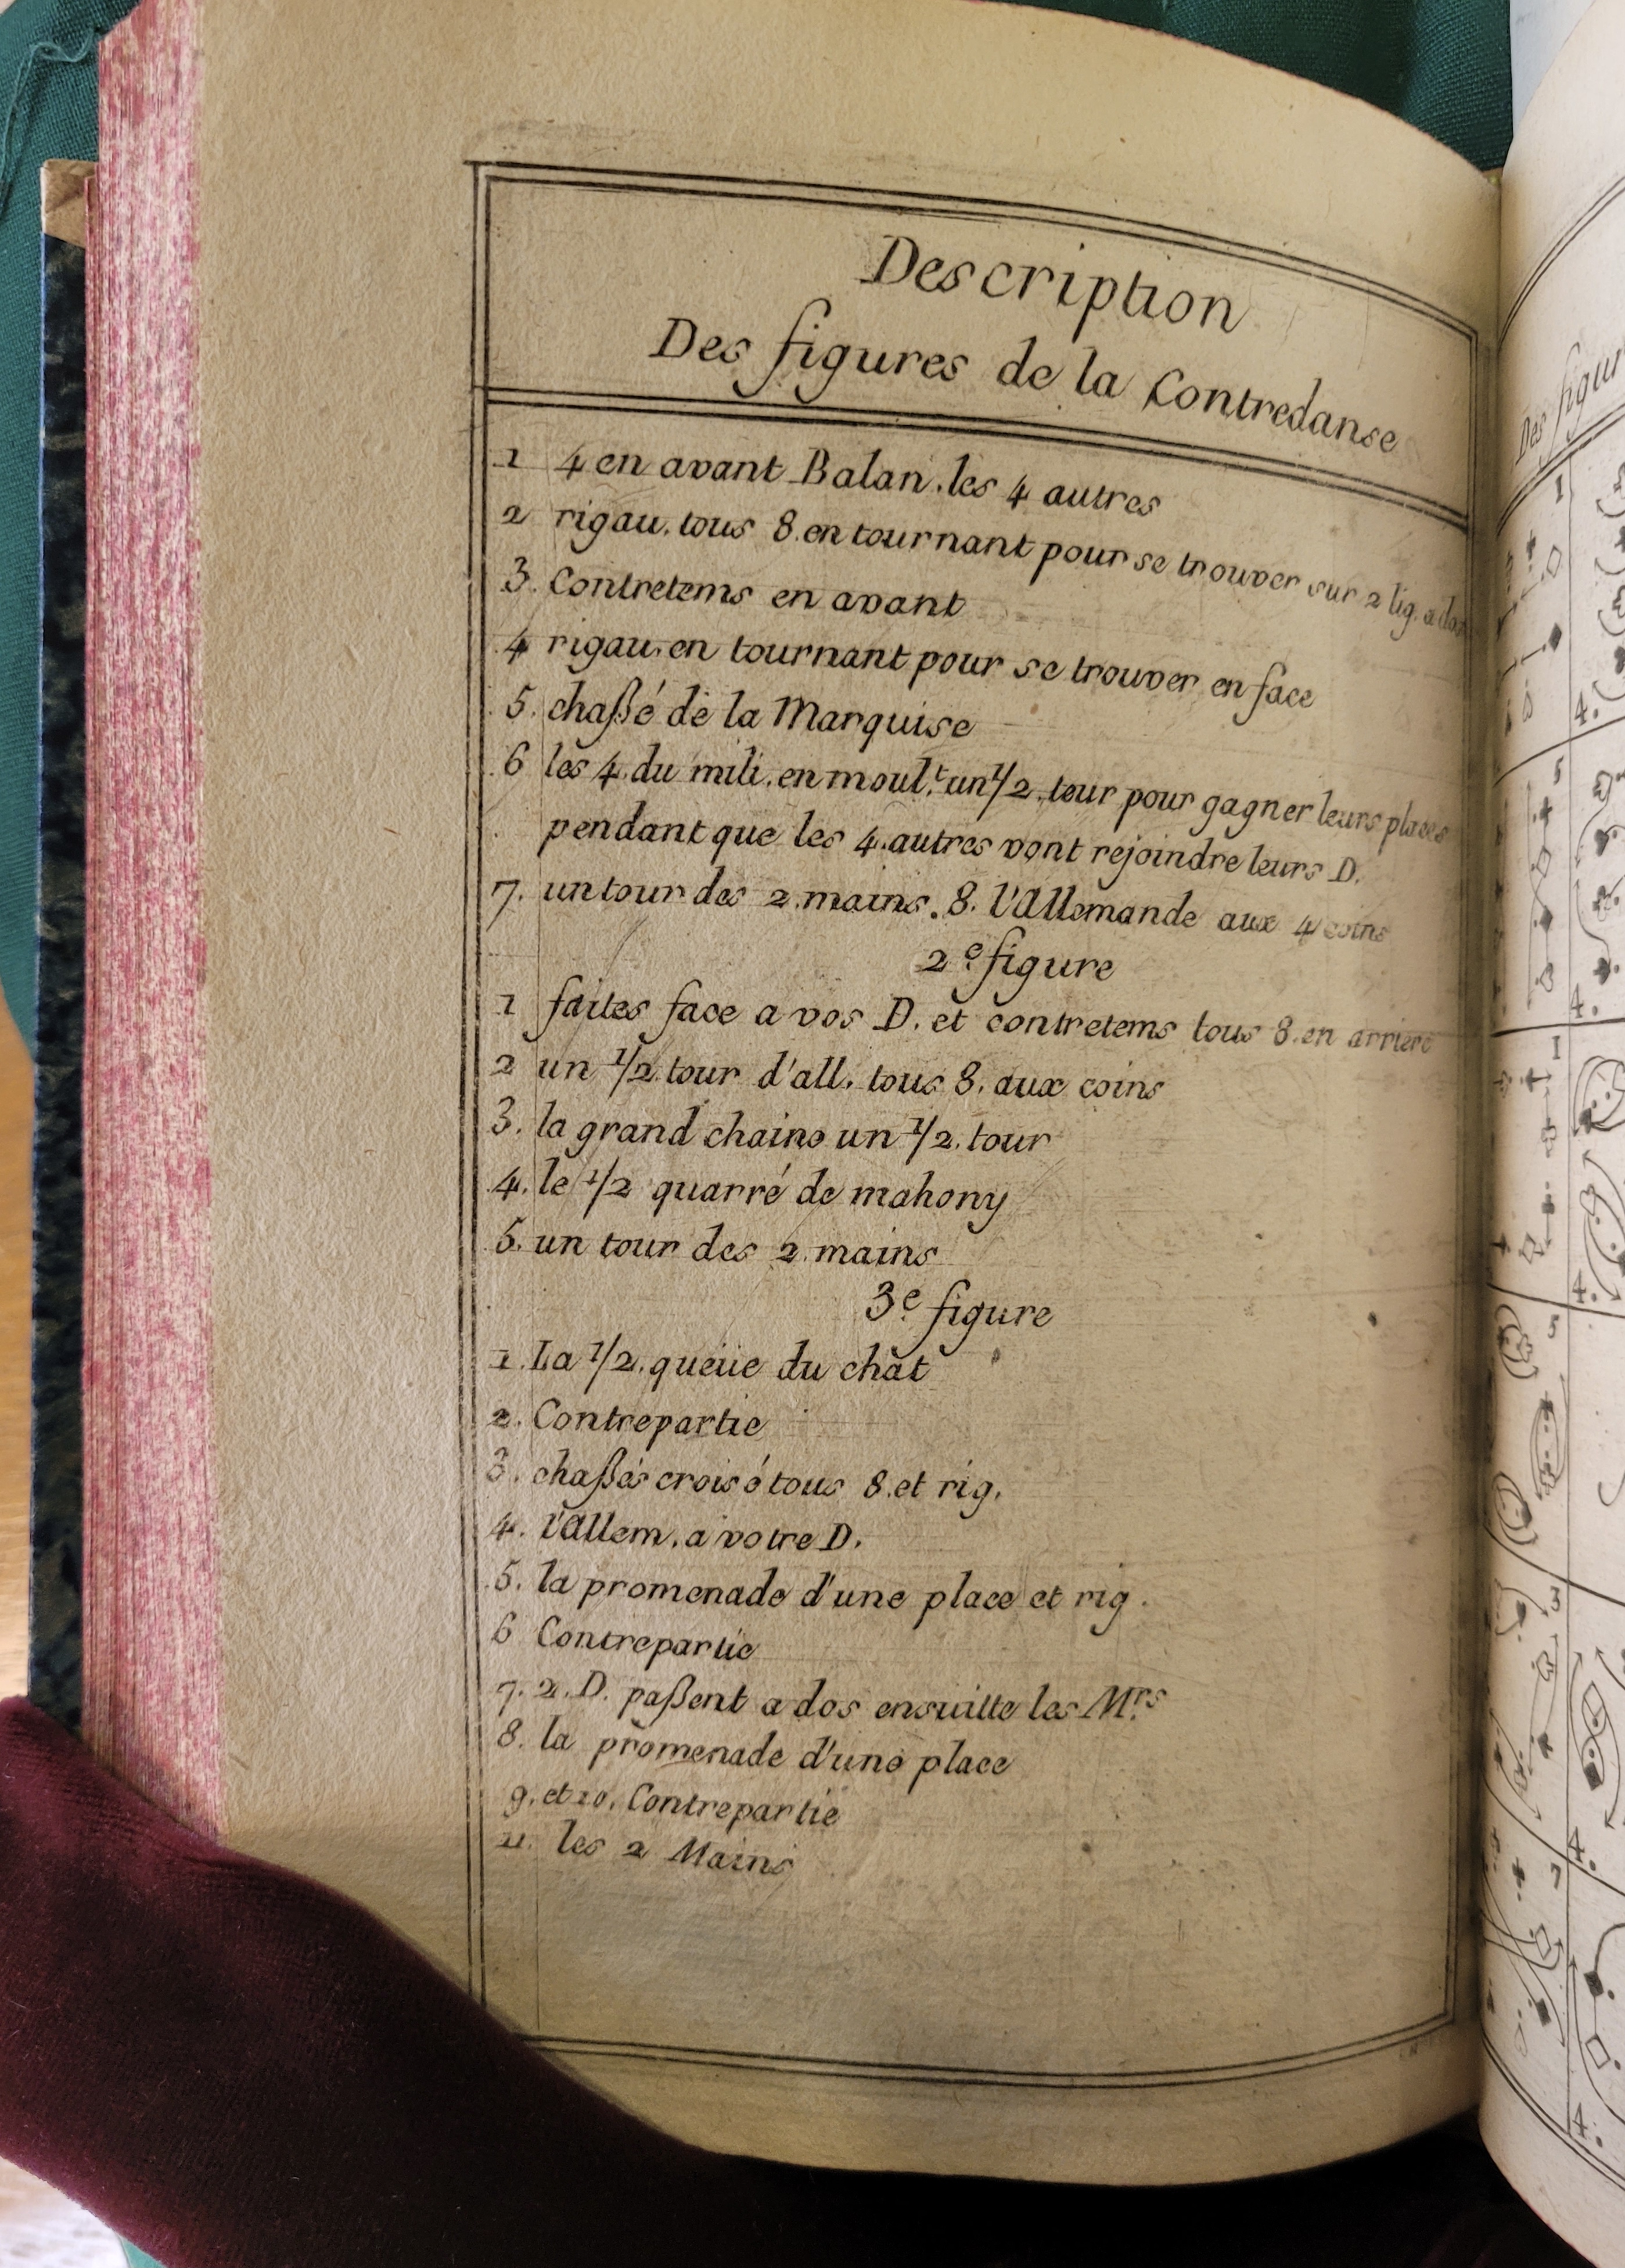 Description
Des figures de la Contredanse
1 4 en avant Balan. les 4 autres
2 rigau. tous 8. en tournant pour se trouver sur 2 lig. a dos
3. Contretems en avant
4 rigau. en tournant pour se trouver en face
5. chaßé de la Marquise
6 les 4. du mili. en moul.t un 1/2. tour pour gagner leurs places
pendant que les 4. autres vont rejoindre leurs D.
7. un tour des 2. mains. 8. l'Allemande aux 4 coins
2.e figure
1 faites face a vos D. et contretems tous 8. en arriere
2 un 1/2. tour d'all. tous 8. aux coins
3. la grand chaine un 1/2. tour
4. le 1/2 quarré de mahony
5. un tour des 2. mains
3.e figure
1. La 1/2. queüe du chat
2. Contrepartie
3. chaßés croisé tous 8. et rig.
4. l'Allem. a votre D.
5. la promenade d'une place et rig.
6 Contrepartie
7. 2. D. paßent a dos ensuitte les M.rs
8. la promenade d'une place
9. et 10. Contrepartie
11. les 2 Mains
Des figur
1
4.
5
4.
1
4.
5
3
4.
7
4.